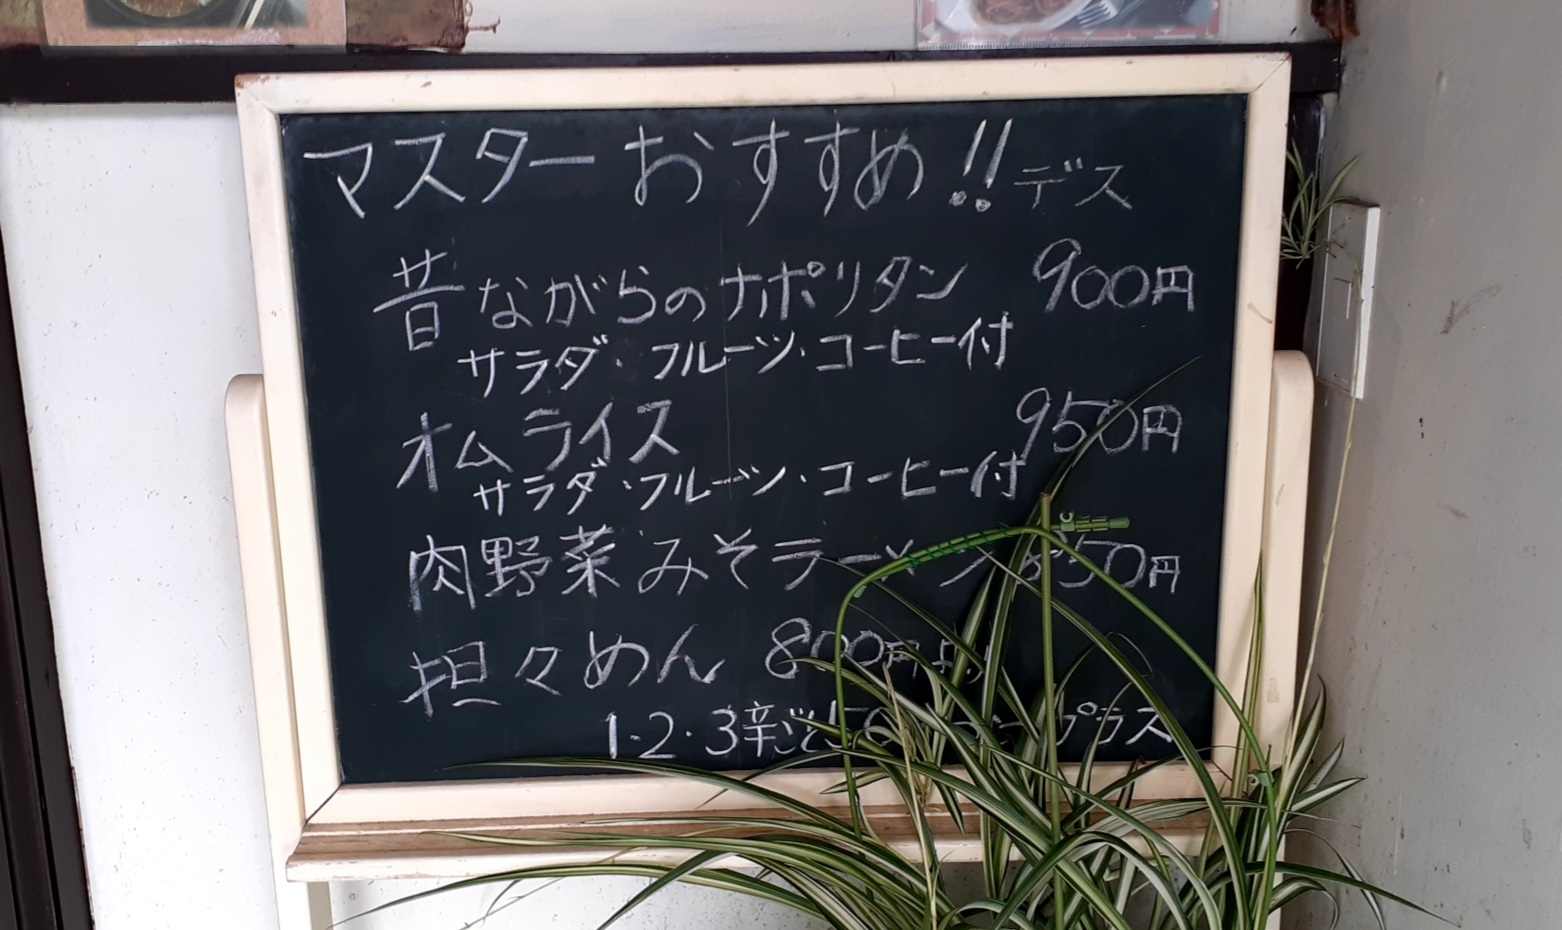 マスターおすすめ!!デス
昔ながらのナポリタン 900円
サラダ・フルーツ・コーヒー付
オムライス 950円
サラダ・フルーツ・コーヒー付
肉野菜みそラーメン 850円
担々めん 800円
1・2・3辛ごと プラス